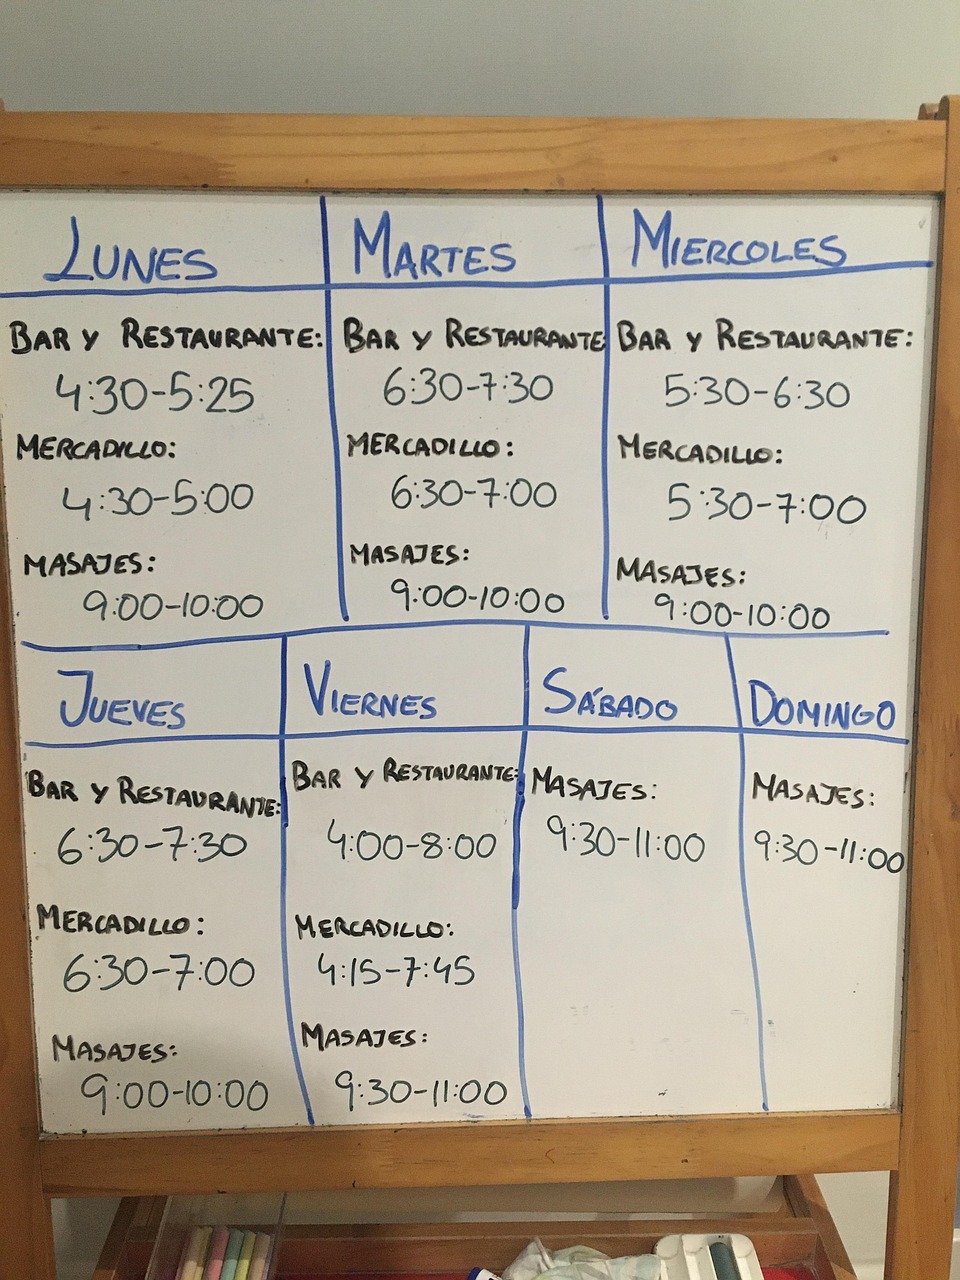 LUNES
BAR Y RESTAURANTE:
4:30-5:25
MERCADILLO:
4:30-5:00
MASAJES:
9:00-10:00
MARTES
BAR Y RESTAURANTE
6:30-7:30
MERCADILLO:
6:30-7:00
MASAJES:
9:00-10:00
MIERCOLES
BAR Y RESTAURANTE:
5:30-6:30
MERCADILLO:
5:30-7:00
MASAJES:
9:00-10:00
JUEVES
BAR Y RESTAURANTE:
6:30-7:30
MERCADILLO:
6:30-7:00
MASAJES:
9:00-10:00
VIERNES
BAR Y RESTAURANTE:
4:00-8:00
MERCADILLO:
4:15-7:45
MASAJES:
9:30-11:00
SÁBADO
MASAJES:
9:30-11:00
DOMINGO
MASAJES:
9:30-11:00